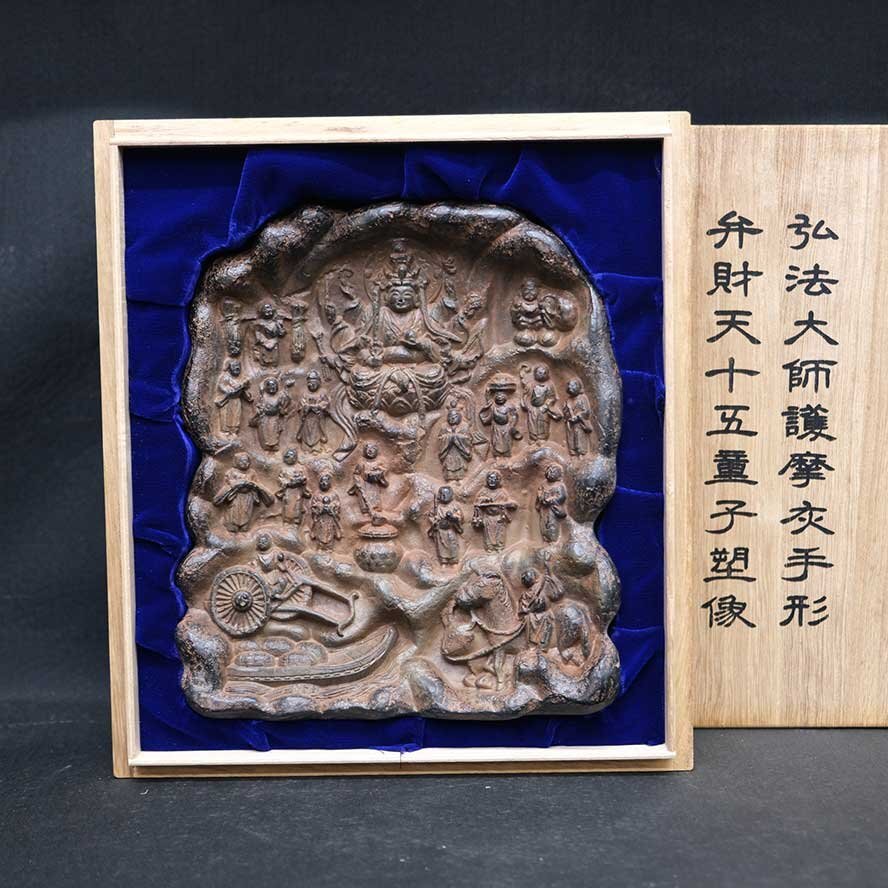 弘法大師護摩灰手形
弁財天十五童子塑像